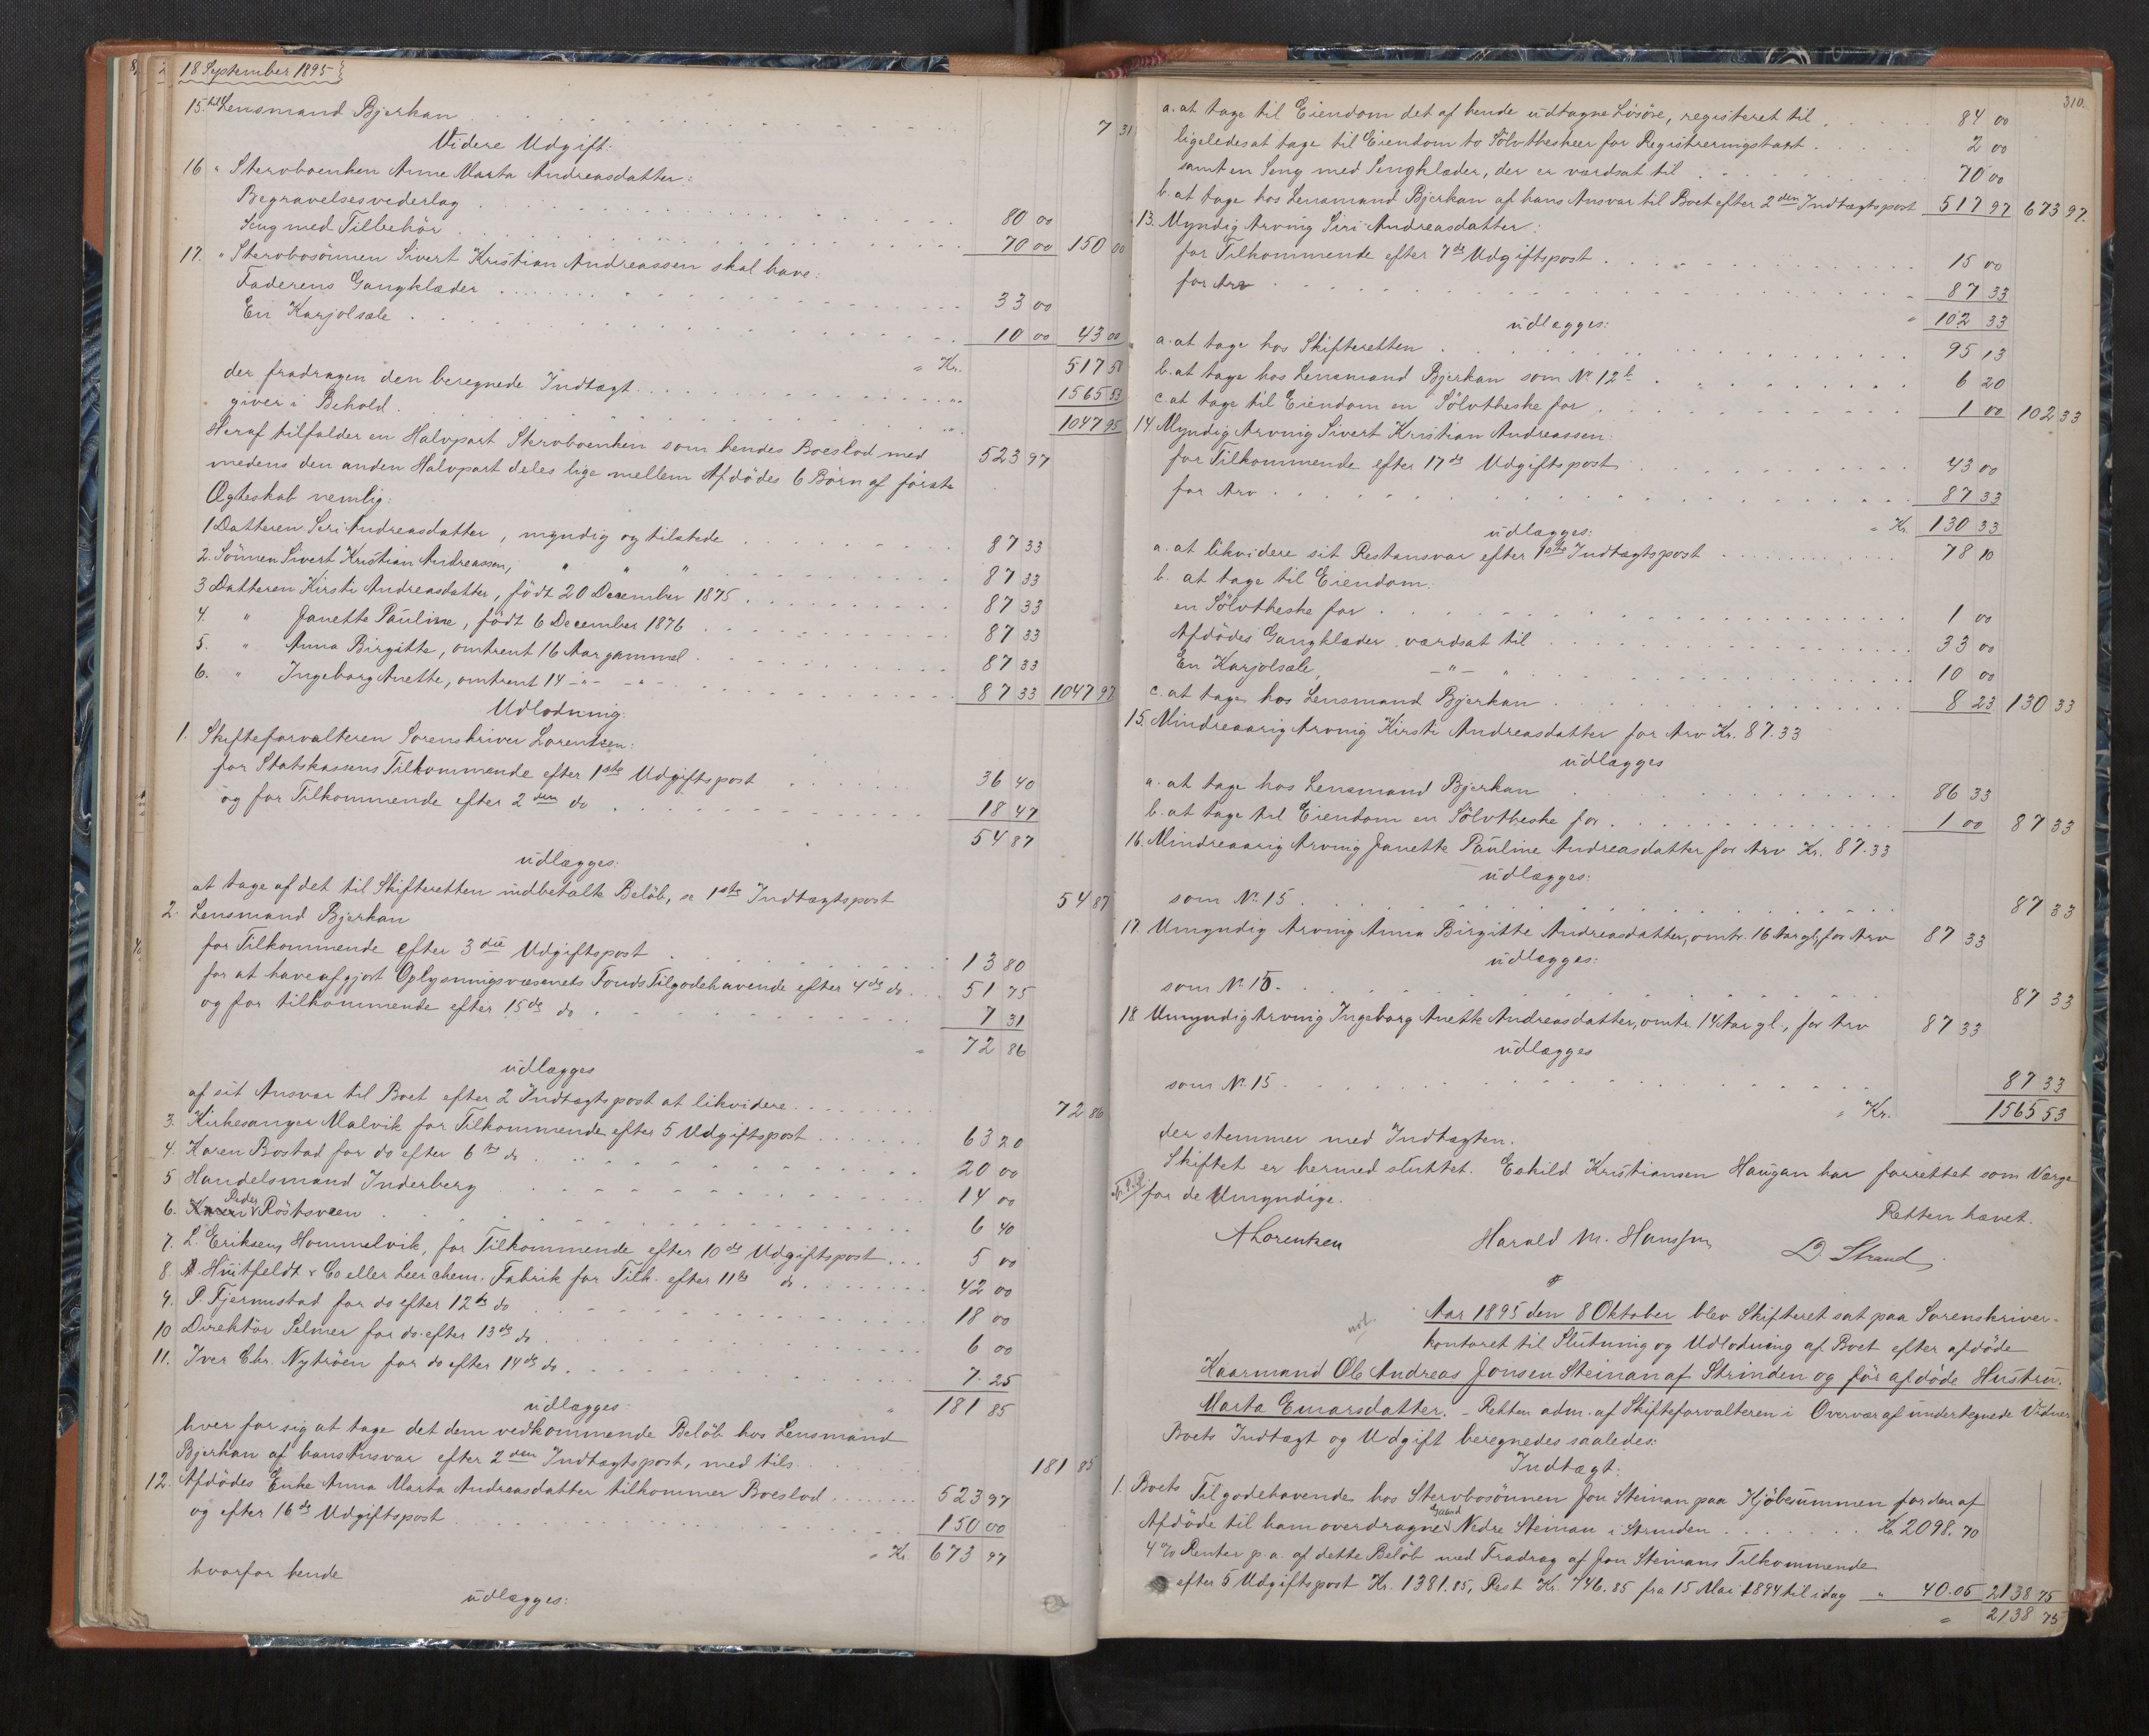 18 September 1895
15. til Lensmand Bjerkan 7 31
Videre Udgift:
16 " Stervboenken Anne Marta Andreasdatter:
Begravelsesvederlag 80 00
Seng med Tilbehör 70 00 150 00
17. " Stervbosönnen Sivert Kristian Andreassen skal have:
Faderens Gangklæder 33 00
En Karjolsæle 10 00 43 00
" Kr. 517 58
der fradragen den beregnede Indtægt " 1565 53
giver i Behold 1047 95
Heraf tilfalder en Halvpart Stervboenken som hendes Boeslod med 523 97
medens den anden Halvpart deles lige mellem Afdödes 6 Börn af förste
Ægteskab nemlig:
1 Datteren Siri Andreasdatter, myndig og tilstede 87 33
2. Sönnen Sivert Kristian Andreassen, " " " 87 33
3 Datteren Kirsti Andreasdatter, födt 20 December 1875 87 33
4. " Janette Pauline, födt 6 December 1876 87 33
5. " Anna Birgitte, omtrent 16 Aar gammel 87 33
6. " Ingeborg Anette, omtrent 14 -"- -"- 87 33 1047 97
Udlodning.
1. Skifteforvalteren Sorenskriver Lorentzen:
for Statskassens Tilkommende efter 1ste Udgiftspost 36 40
og for Tilkommende efter 2den do 18 47
54 87
udlægges:
at tage af det til Skifteretten indbetalte Belöb, se 1ste Indtægtspost 54 87
2. Lensmand Bjerkan
for Tilkommende efter 3die Udgiftspost 13 80
for at have afgjort Oplysningsvæsenets Fonds Tilgodehavende efter 4de do 51 75
og for tilkommende efter 15de do 7 31
" 72 86
udlægges
af sit Ansvar til Boet efter 2 Indtægtspost at likvidere 72 86
3. Kirkesanger Malvik for Tilkommende efter 5 Udgiftspost 63 20
4. Karen Bostad for do efter 6te do 20 00
5 Handelsmand Inderberg 14 00
6. Peder Röstsveen 6 40
7. L. Eriksen, Hommelvik, for Tilkommende efter 10de Udgiftspost 5 00
8. Huitfeldt & Co eller Leer chem. Fabrik for Tilk. efter 11te do 42 00
9. P. Fjermstad for do efter 12te do 18 00
10 Direktör Selmer for do efter 13de do 6 00
11. Iver Chr. Nytröen for do efter 14de do 7.25
udlægges: " 181 85
hver for sig at tage det dem vedkommende Belöb hos Lensmand
Bjerkan af hans Ansvar efter 2den Indtægtspost, med tils. 181 85
12. Afdödes Enke Anna Marta Andreasdatter tilkommer Boeslod 523 97
og efter 16de Udgiftspost 150 00
" Kr. 673 97
hvorfor hende
udlægges:
310.
a. at tage til Eiendom det af hende udtagne Lösöre, registeret til 84 00
ligeledes at tage til Eiendom to Sölvtheskeer for Registreringstaxt 2 00
samt en Seng med Sengklæder, der er værdsat til 70 00
b. at tage hos Lensmand Bjerkan af hans Ansvar til Boet efter 2den Indtægtspost 517 97 673 97.
13. Myndig Arving Siri Andreasdatter:
for Tilkommende efter 7de Udgiftspost 15 00
for Arv 87 33
udlægges: " 102 33
a. at tage hos Skifteretten 95 13
b. at tage hos Lensmand Bjerkan som No 12 b 6 20
c. at tage til Eiendom en Sölvtheske for 1 00 102 33
14. Myndig Arving Sivert Kristian Andreassen:
for Tilkommende efter 17de Udgiftspost 43 00
for Arv 87 33
udlægges: " Kr. 130 33
a. at likvidere sit Restansvar efter 1ste Indtægtspost 78 10
b. at tage til Eiendom:
en Sölvtheske for 1 00
Afdödes Gangklæder værdsat til 33 00
En Karjolsæle, -"- " 10 00
c. at tage hos Lensmand Bjerkan 8 23 130 33
15. Mindreaarig Arving Kirsti Andreasdatter for Arv Kr. 87.33
udlægges
a. at tage hos Lensmand Bjerkan 86 33
b. at tage til Eiendom en Sölvtheske for 1 00 87 33
16. Mindreaarig Arving Janette Pauline Andreasdatter for Arv Kr. 87.33
udlægges:
som No 15 87 33
17. Umyndig Arving Anna Birgitte Andreasdatter, omtr. 16 Aar gl, for Arv 87 33
udlægges:
som No 15. 87 33
18 Umyndig Arving Ingeborg Anette Andreasdatter, omtr. 14 Aar gl., for Arv 87 33
udlægges
som No. 15 87 33
" Kr. 1565 53
der stemmer med Indtægten.
Skiftet er hermed sluttet. Eskild Kristiansen Haugan har forrettet som Værge
for de Umyndige.
Retten hævet.
A Lorentzen Harald M. Hansen D. Strand
Aar 1895 den 8 Oktober blev Skifteret sat paa Sorenskriver-
kontoret til Slutning og Udlodning af Boet efter afdöde
Kaarmand Ole Andreas Jonsen Steinan af Strinden og för afdöde Hustru
Marta Emarsdatter. - Retten adm. af Skifteforvalteren i Overvær af undertegnede Vidner
Boets Indtægt og Udgift beregnedes saaledes:
Indtægt:
1. Boets Tilgodehavende hos Stervbosönnen Jon Steinan paa Kjöbesummen for den af
Afdöde til ham overdragne Gaard Nedre Steinan i Strinden Kr. 2098.70
4 % Renter p. a. af dette Belöb med Fradrag af Jon Steinans Tilkommende
efter 5 Udgiftspost Kr. 1381.85, Rest Kr. 746.85 fra 15 Mai 1894 til idag " 40.05 2138 75
" 2138 75